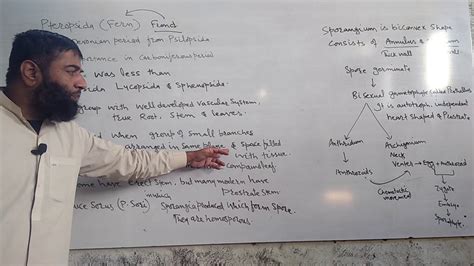 Pteropsida (Fern) Find
Devonian period from Psilopsida
in Carboniferous period
was less than
Lycopsida & Sphenopsida.
group with well developed Vascular System,
true Root, Stem & leaves.
when group of small branches
arranged in same plane & space filled
with tissue
have Erect Stem, but many modern have
Prostrate Stem
Sorus (P. Sori) Sporangia produced which form Spore.
They are homosporous.
Sporangium is biconvex shape
consists of Annulus &
Thick wall
Spore germinate
Bisexual gametophyte called Prothallus
It is autotroph, independent
heart Shaped & Prostrate
Anthridium
Archegonium
Neck
Venter → Egg
Antherozoids
Chemotactic
movement
Zygote
Embryo
Sporophyte.